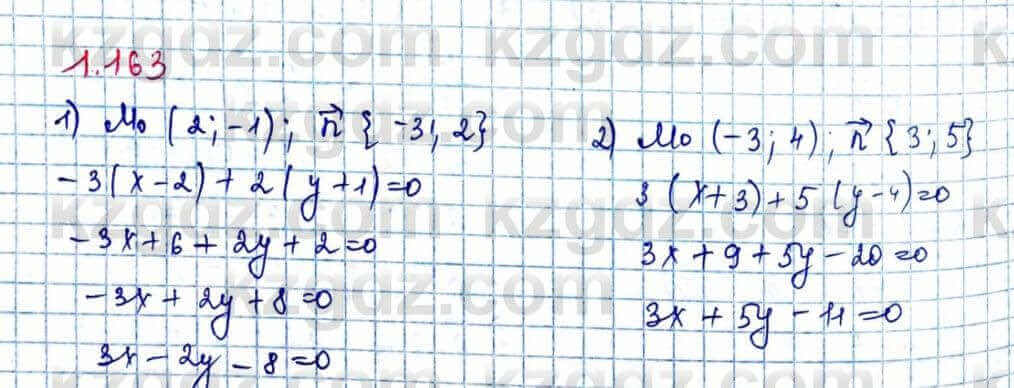 1.163
1) M₀ (2;-1); n⃗ {-3; 2}
-3(x-2)+2(y+1)=0
-3x+6+2y+2=0
-3x+2y+8=0
3x-2y-8=0
2) M₀ (-3; 4); n⃗ {3; 5}
3(x+3)+5(y-4)=0
3x+9+5y-20=0
3x+5y-11=0
kzgdz.com
kzgdz.com
kzgdz.com
kzgdz.com